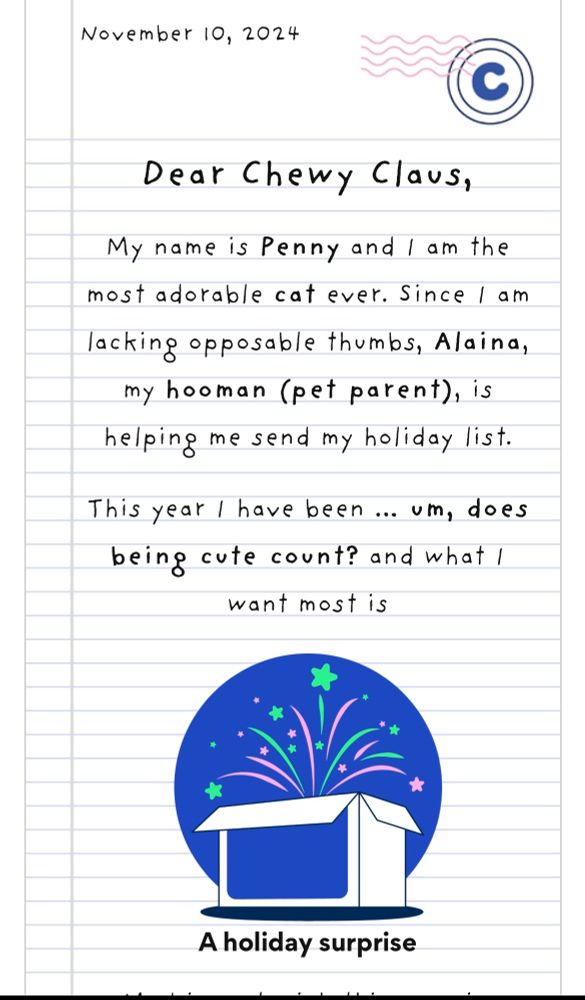 November 10, 2024
C
Dear Chewy Claus,
My name is Penny and I am the
most adorable cat ever. Since I am
lacking opposable thumbs, Alaina,
my hooman (pet parent), is
helping me send my holiday list.
This year I have been ... um, does
being cute count? and what I
want most is
A holiday surprise